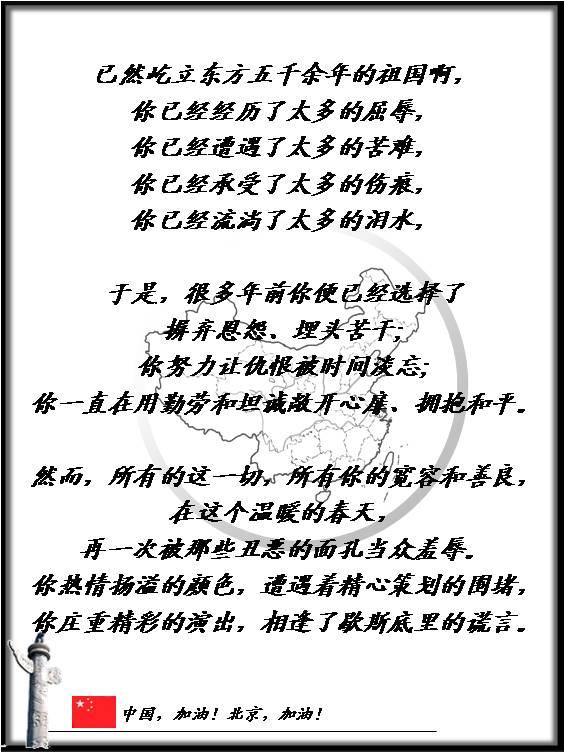 已然屹立东方五千余年的祖国啊，
你已经经历了太多的屈辱，
你已经遭遇了太多的苦难，
你已经承受了太多的伤痕，
你已经流淌了太多的泪水，
于是，很多年前你便已经选择了
摒弃恩怨、埋头苦干;
你努力让仇恨被时间淡忘;
你一直在用勤劳和坦诚敞开心扉、拥抱和平。
然而，所有的这一切，所有你的宽容和善良，
在这个温暖的春天，
再一次被那些丑恶的面孔当众羞辱。
你热情扬溢的颜色，遭遇着精心策划的围堵，
你庄重精彩的演出，相逢了歇斯底里的谎言。
中国，加油！北京，加油！